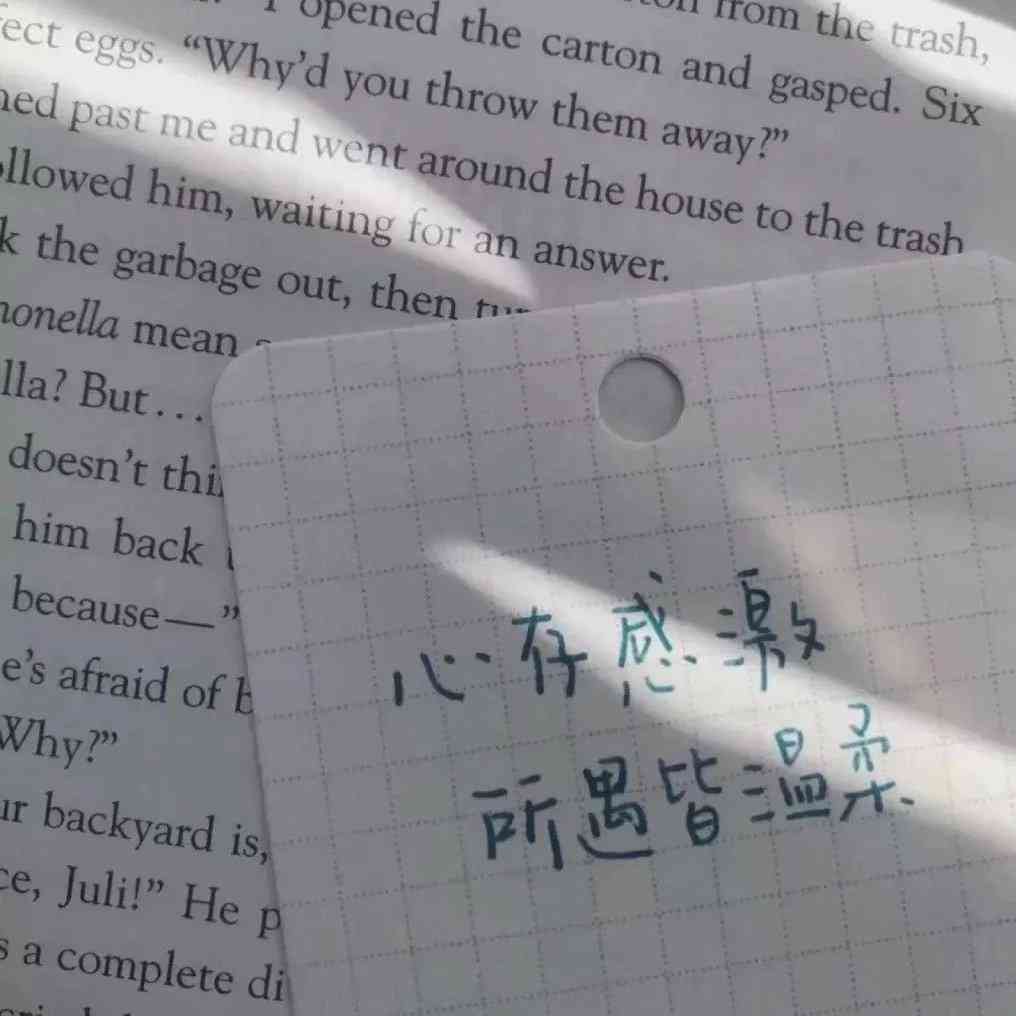 from the trash,
opened the carton and gasped. Six
ect eggs. “Why’d you throw them away?”
ned past me and went around the house to the trash
llowed him, waiting for an answer.
k the garbage out, then
nonella mean
lla? But...
doesn’t thi
him back
because—”
e’s afraid of b
Why?”
ur backyard is,
ce, Juli!” He p
s a complete di
心存感激
所遇皆温柔